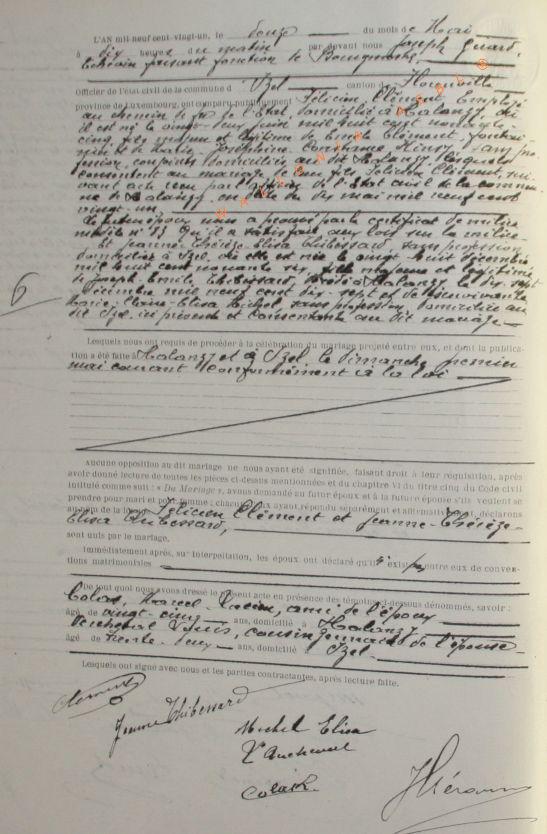 L'AN mil-neuf cent-vingt-un, le douze du mois de Mai
à dix heures du matin par devant nous Joseph
Echevin faisant fonction de Bourgmestre
Officier de l'état civil de la commune d' Izel canton de Florenville
province de Luxembourg, ont comparu publiquement Félicien, Clément, Employé
au chemin de fer de l'Etat, domicilié à Halanzy, où
il est né le vingt-un juin mil huit cent nonante
cinq, fils majeur et légitime de Emile Clément,
et de Marie Joséphine Henry, sans pro-
fession, conjoints domiciliés au dit Halanzy, lesquels
consentent au mariage de leur fils Félicien Clément, sui-
vant acte reçu par l'officier de l'Etat civil de la commu-
ne de Halanzy, en date du dix mai mil neuf cent
vingt-un
Le futur époux nous a prouvé par le certificat de milice
modèle n° 33 qu'il a satisfait aux lois sur la milice.
Et Jeanne-Thérèze-Elisa Thibessard, sans profession
domiciliée à Izel, où elle est née le vingt huit décembre
mil huit cent nonante six, fille majeure et légitime
de Joseph, Emile Thibessard, décédé à Halanzy, le dix-sept
décembre mil neuf cent dix-sept et de survivante
Marie-Claire-Elisa Michel, sans profession, domiciliée au
dit Izel, ici présente et consentante au dit mariage
6
Lesquels nous ont requis de procéder à la célébration du mariage projeté entre eux, et dont la publica-
tion a été faite à Halanzy et à Izel, le dimanche, premier
mai courant conformément à la loi
Aucune opposition au dit mariage ne nous ayant été signifiée, faisant droit à leur réquisition, après
avoir donné lecture de toutes les pièces ci-dessus mentionnées et du chapitre VI du titre cinq du Code civil
intitulé comme suit : « Du Mariage », avons demandé au futur époux et à la future épouse s'ils veulent se
prendre pour mari et pour femme ; chacun d'eux ayant répondu séparément et affirmativement, déclarons
au nom de la loi que Félicien Clément et Jeanne-Thérèze-
Elisa Thibessard,
sont unis par le mariage.
Immédiatement après, sur interpellation, les époux ont déclaré qu'il n'existe pas entre eux de conven-
tions matrimoniales
De tout quoi nous avons dressé le présent acte en présence des témoins ci-dessous dénommés, savoir :
Colas, Marcel-Lucien, ami de l'époux
âgé de vingt-cinq ans, domicilié à Halanzy
Louis, cousin germain de l'épouse
âgé de trente-deux ans, domicilié à Izel
Lesquels ont signé avec nous et les parties contractantes, après lecture faite.
Clément
Jeanne Thibessard
Michel Elisa